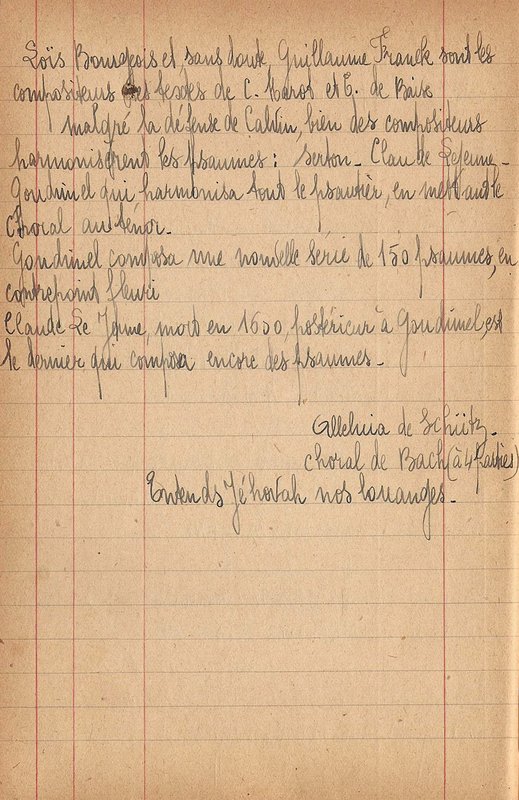 Loïs Bourgeois et, sans doute, Guillaume Franck sont les
compositeurs des textes de C. Marot et T. de Bèze
malgré la défense de Calvin, bien des compositeurs
harmonisèrent les psaumes : Serton - Claude Lejeune -
Goudimel qui, harmonisa tout le psautier, en mettant le
choral au tenor.
Goudimel composa une nouvelle série de 150 psaumes, en
contrepoint fleuri
Claude Le Jeune, mort en 1600, postérieur à Goudimel, est
le dernier qui composa encore des psaumes -
Alleluia de Schütz -
Choral de Bach (à 4 Parties)
Entends Jéhovah nos louanges -